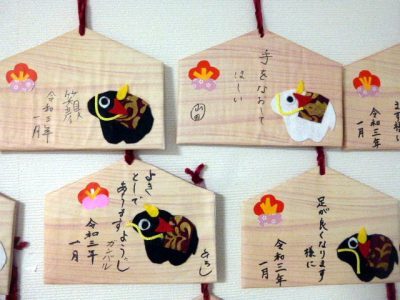 笑顔
令和三年
一月
手をなおして
ほしい
山田
ます様に
令和三年
一月
よき
として
ありますように
ガンバル
令和三年
一月
足が良くなります
様に
令和三年
一月